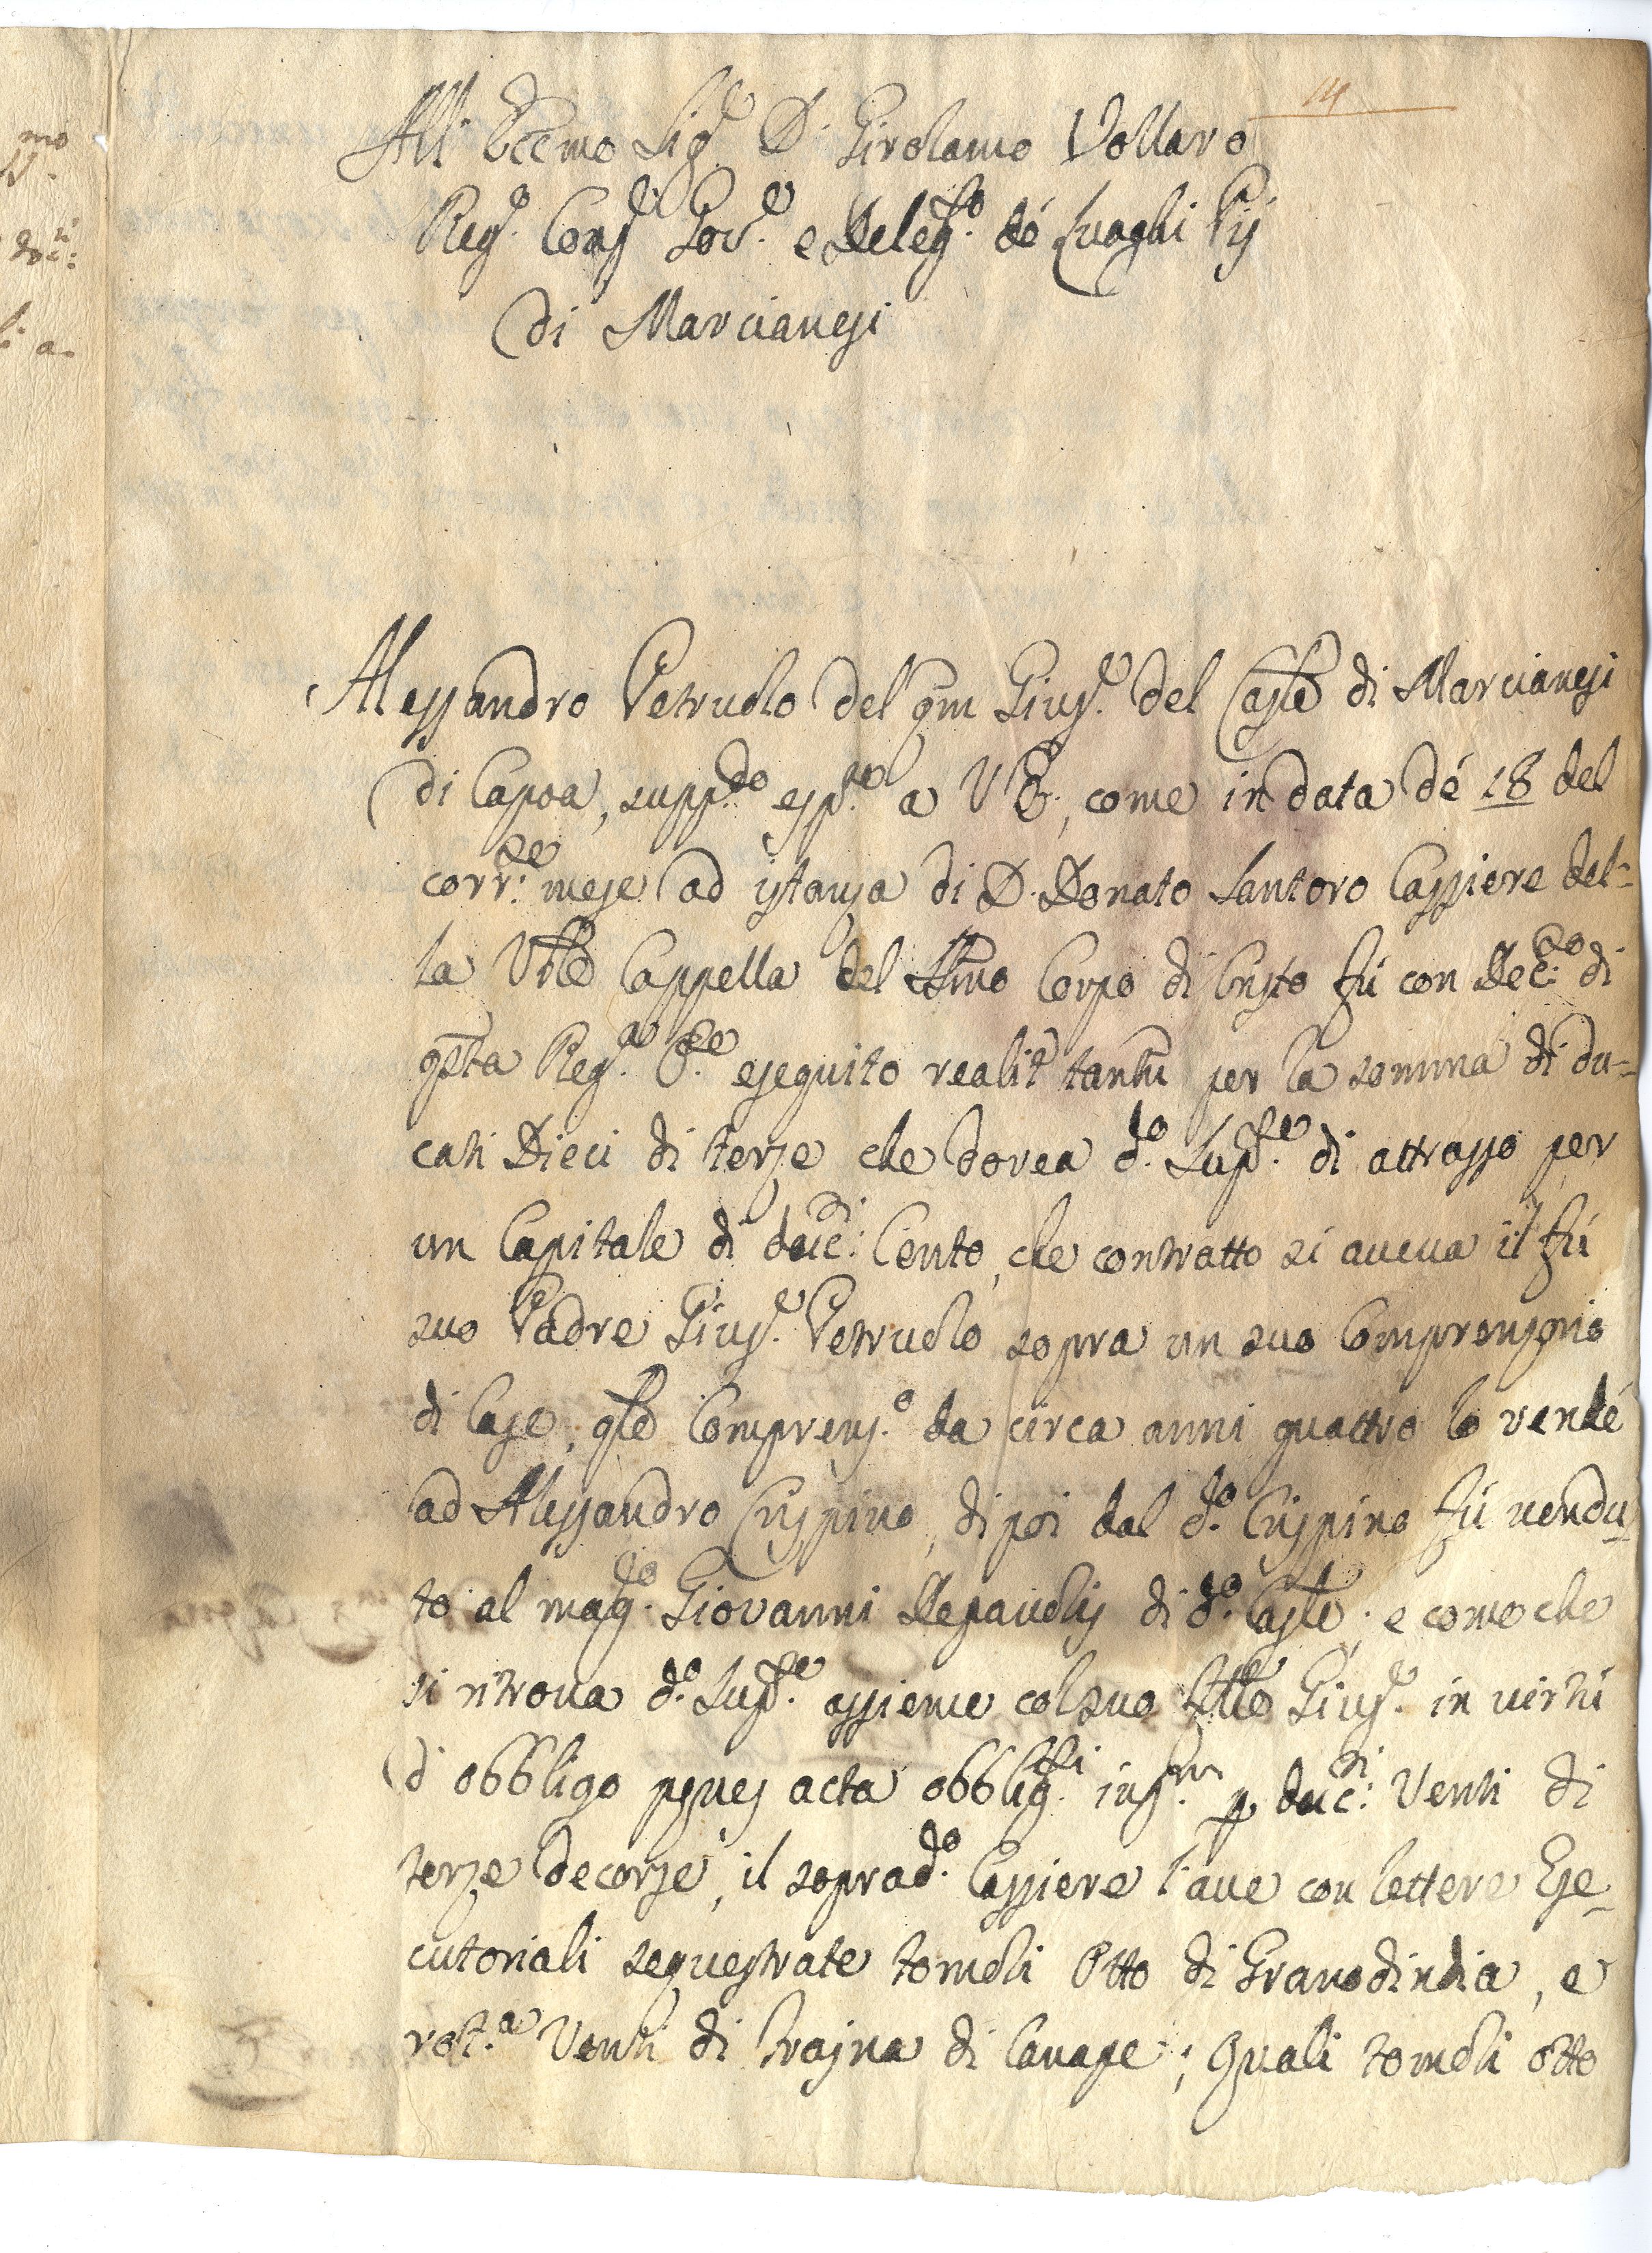 14
All' Eccmo Sig.e D. Girolamo Vollaro
Reg.o Cons.e Gov.e e Deleg.to dé Luoghi Pij
di Marcianesi
Alessandro Petruolo del qm Gius.e del Casle di Marcianesi
di Capoa, supp.do esp.ne a V E, come in data dé 18 del
corr.te mese ad istanza di D. Donato Santoro Cassiere del=
la Vble Cappella del SSmo Corpo di Cristo fù con Dec.to di
qsta Reg.a C.te eseguito realit.r tantu per la somma di du=
cati Dieci di terze che dovea d.o Sup.te di attrasso per
un Capitale di duc.ti Cento, che contratto si aveva il fù
suo Padre Gius.e Petruolo sopra un suo Comprensorio
di Case, qle Comprens.o da circa anni quattro lo vendé
ad Alessandro Crispino, dipoi dal d.o Crispino fù vendu
to al mag.co Giovanni Depaolis di d.o Casle; e come che
si ritrova d.o Sup.te assieme col suo frllo Gius.e in virtù
d' obbligo penes acta obblig.ti ins.m p duc.ti Venti di
terze decorse, il soprad.o Cassiere l'ave con lettere Ese
cutoriali sequestrate tomola Otto di Granodindia, e
rot.a Venti di trajna di Canape; Quali tomola otto
mo
duc.ti
a-